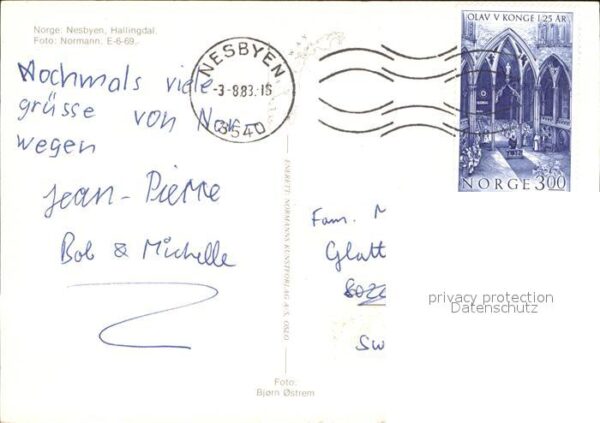 Norge: Nesbyen, Hallingdal.
Foto: Normann. E-6-69.
Nochmals viele
grüsse von Nor-
wegen
Jean-Pierre
Bob & Michelle
NESBYEN
-3-8.83.-15
3540
OLAV V KONGE I 25 ÅR
NORGE 3.00
ENERETT: NORMANNS KUNSTFORLAG A/S, OSLO
Fam. M
Glatt
802
Sw
privacy protection
Datenschutz
Foto:
Bjørn Østrem